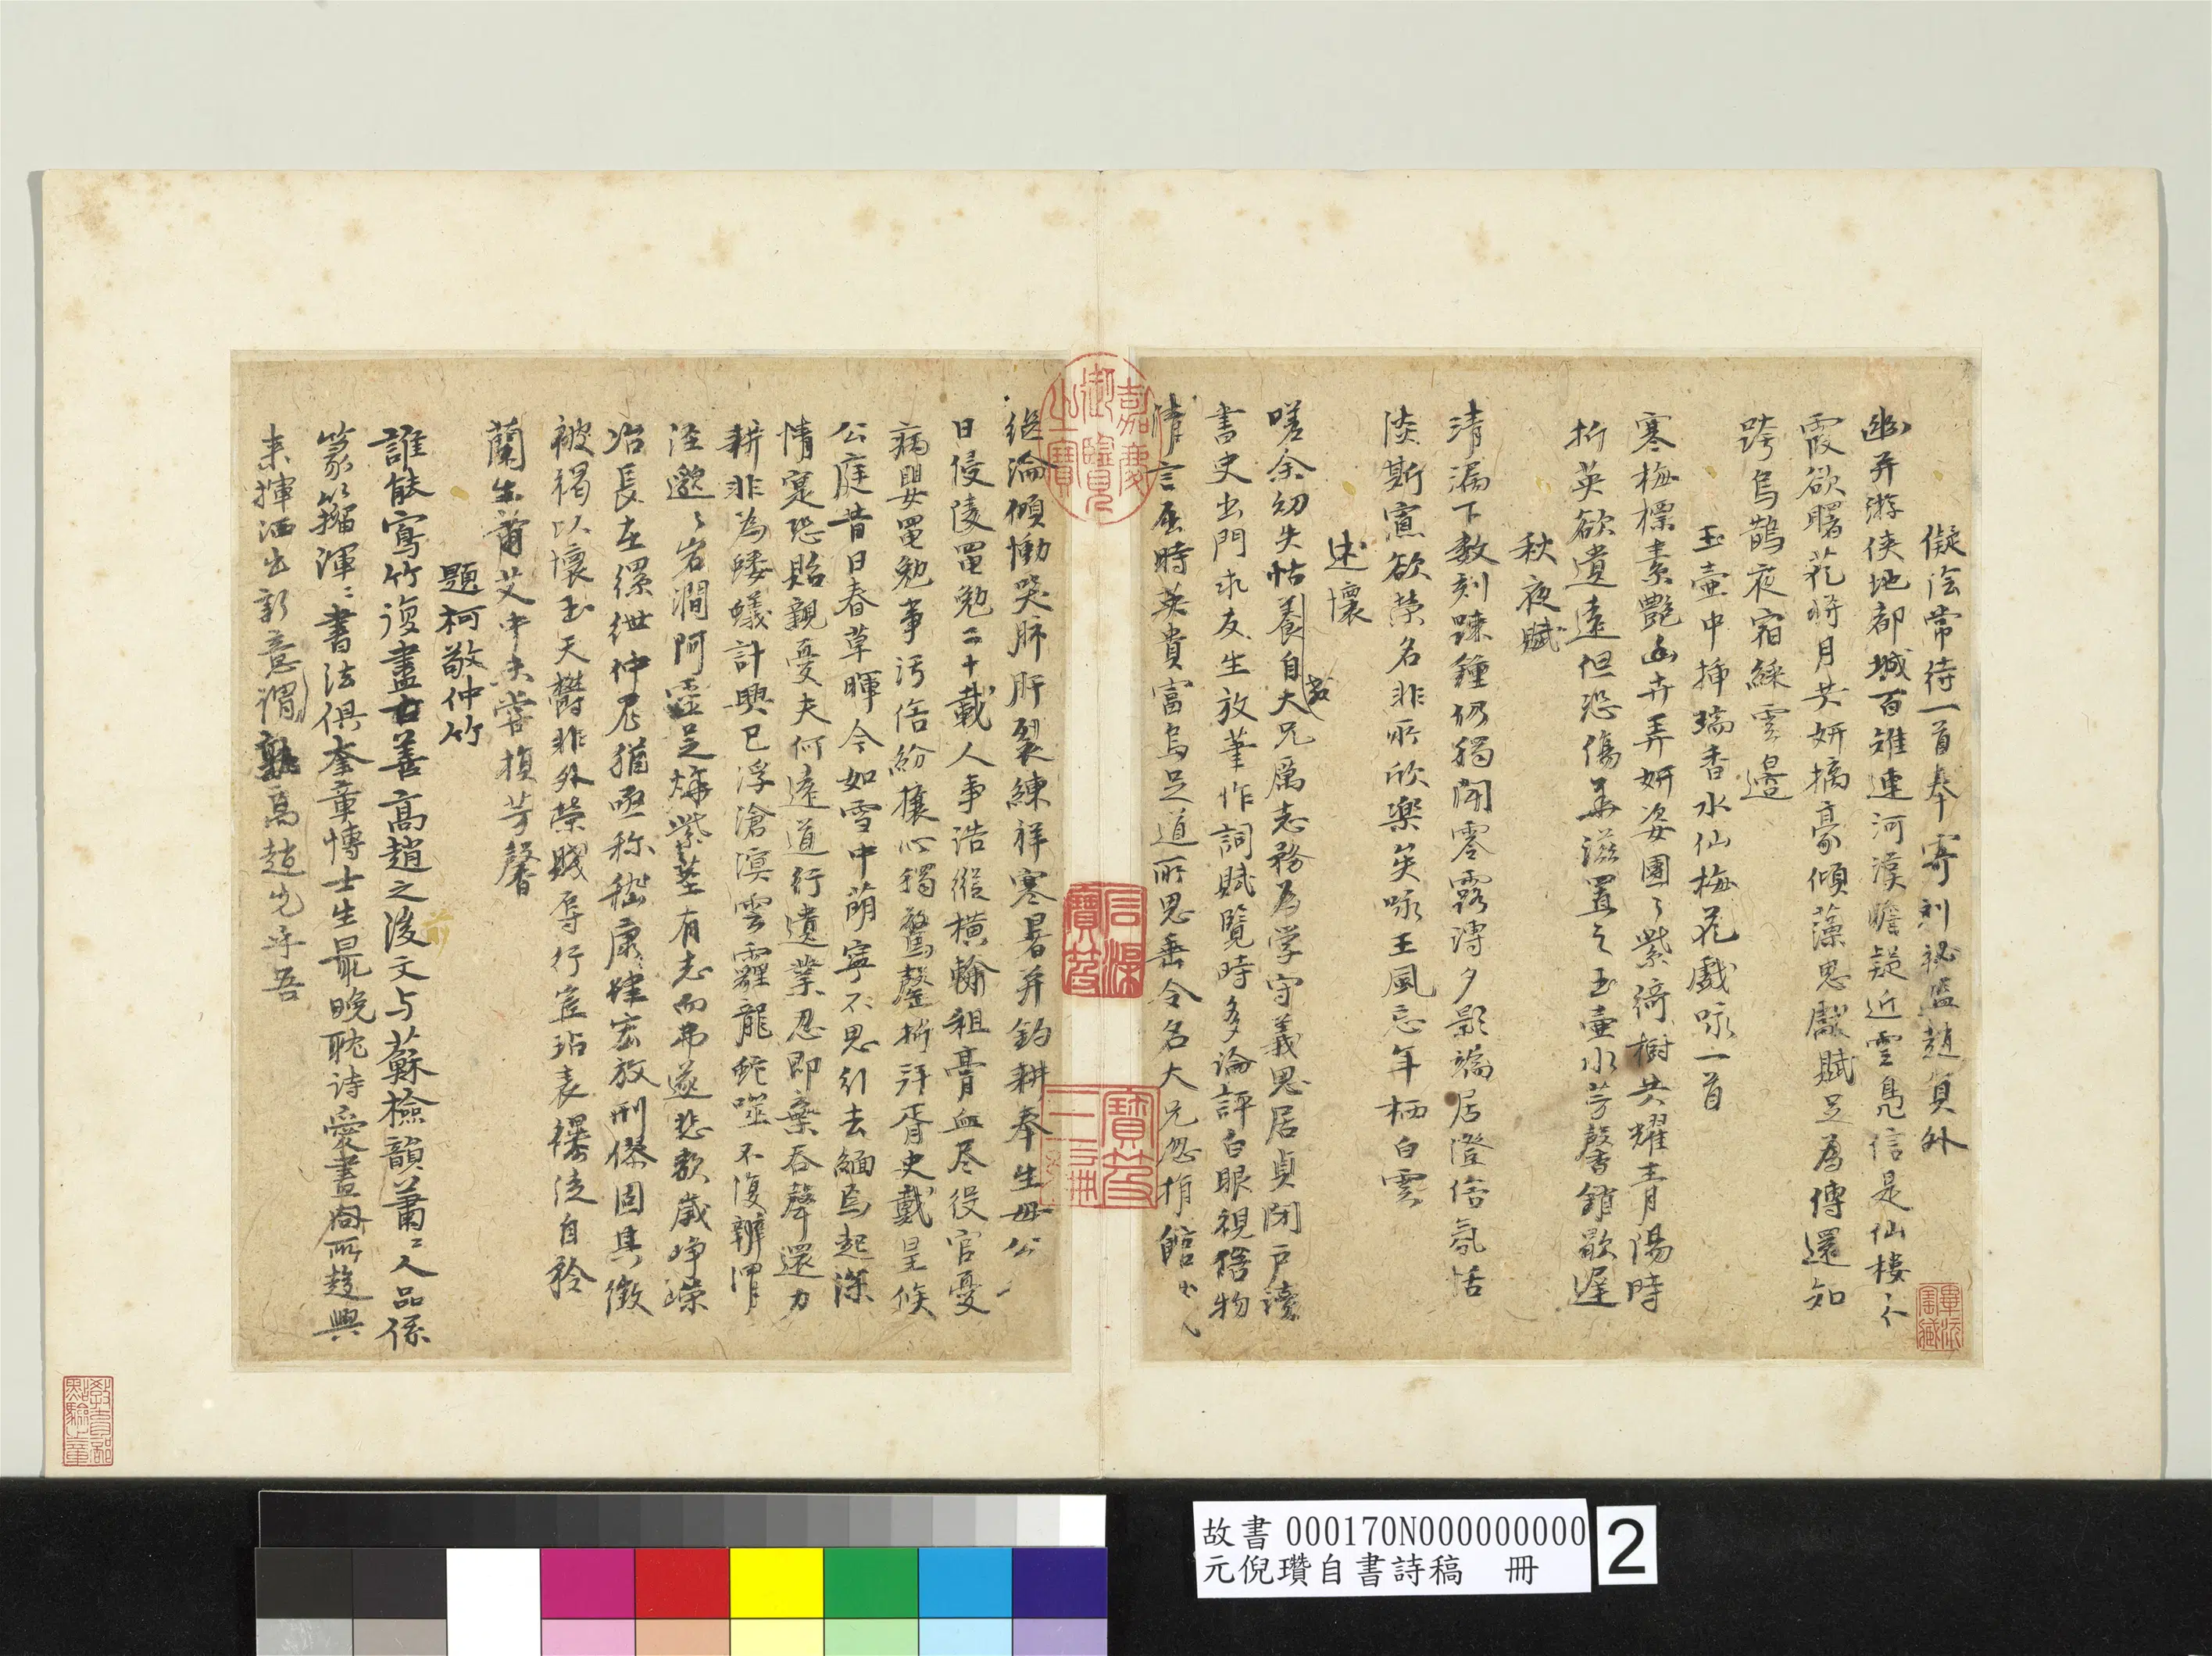 儗法常待一首奉寄利祕監趙員外
幽弄游俠地都城百雉連河漢瞻疑近雲鳧信是仙樓
霞欲曙花將月共妍摛豪傾藻思獻賦足為傳還知
跨烏鵲夜宿綵雲邊
玉壺中揷瑞香水仙梅花戲咏一首
寒梅標素艷幽卉弄妍姿團〻紫綺樹共耀青陽時
折英欲遺遠但恐傷華滋置之玉壺水芳馨銷歇遲
秋夜賦
清漏下數刻踈鐘仍獨聞零露漙夕影端居澄俗氛恬
淡斯寡欲榮名非所欣樂矣咏王風忘年栖白雲
述懷
嗟余幼失怙養自大兄厲志務為学守義思居貞閉戶讀
書史出門求友生放筆作詞賦覽時多論評白眼視俗物
清言屈時英貴富烏足道所思垂令名大兄忽捐館
繼淪傾慟哭肺肝裂練祥寒暑并釣耕奉生母公
日侵陵黽勉二十載人事浩縱橫輸租膏血尽役官憂
病嬰黽勉事汚俗紛攘心獨驚罄折拜胥史戴星候
公庭昔日春草暉今如雪中萌寧不思引去緬焉起深
情寔恐貽親憂夫何遠道行遺業忍即棄吞聲還力
耕非為螻蟻計興已浮滄溟雲霾龍蛇噬不復辨渭
涇邈〻岩澗阿靈芝燁紫莖有志而弗遂悲歌歲崢嶸
冶長在縲紲仲尼猶亟称嵇康肆宏放刑僇固其徵
被褐以懷玉天爵非外榮賤辱行豈玷表襮徒自矜
蘭生蕭艾中未嘗損芳馨
題柯敬仲竹
誰能寫竹復盡善高趙之後文与蘇檢韻蕭〻人品係
篆籀渾〻書法俱奎章博士生最晚耽诗愛畫同所趍興
来揮洒出新意孰謂高趙先乎吾
嘉慶御覽之寶
石渠寶笈
教育部點驗之章
故書 000170N000000000
元倪瓚自書詩稿 冊
2